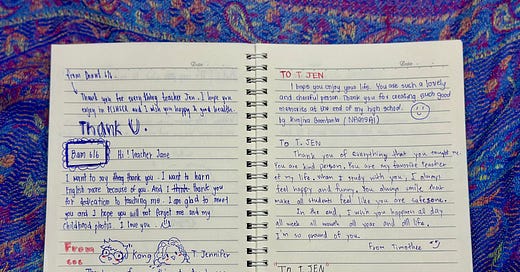 Date
from
Thank you for everything teacher Jen. I hope you
enjoy in and I wish you happy & good health.
Thank U.
Bam 6/6 Hi ! Teacher Jane
I want to say thank you. I want to learn
English more because of you. And I thank you
for dedication to teaching me. I am glad to meet
you and I hope you will not forget me and my
childhood photos. I love you
From Kong T. Jennifer
666
Date
TO T. JEN
I hope you enjoy your life. You are such a lovely
and cheerful person. Thank you for creating such good
memories at the end of my high school.
by
TO T. JEN
Thank you of everything that you taught me.
You are kind person. You are my favorite teacher
of my life. When I study with you, I always
feel happy and funny. You always smile that
make all students feel like you are awesome.
In the end, I wish you happiness all day
all week all month all year and all life.
I'm so proud of you.
From Timothee
"TO T JEN"